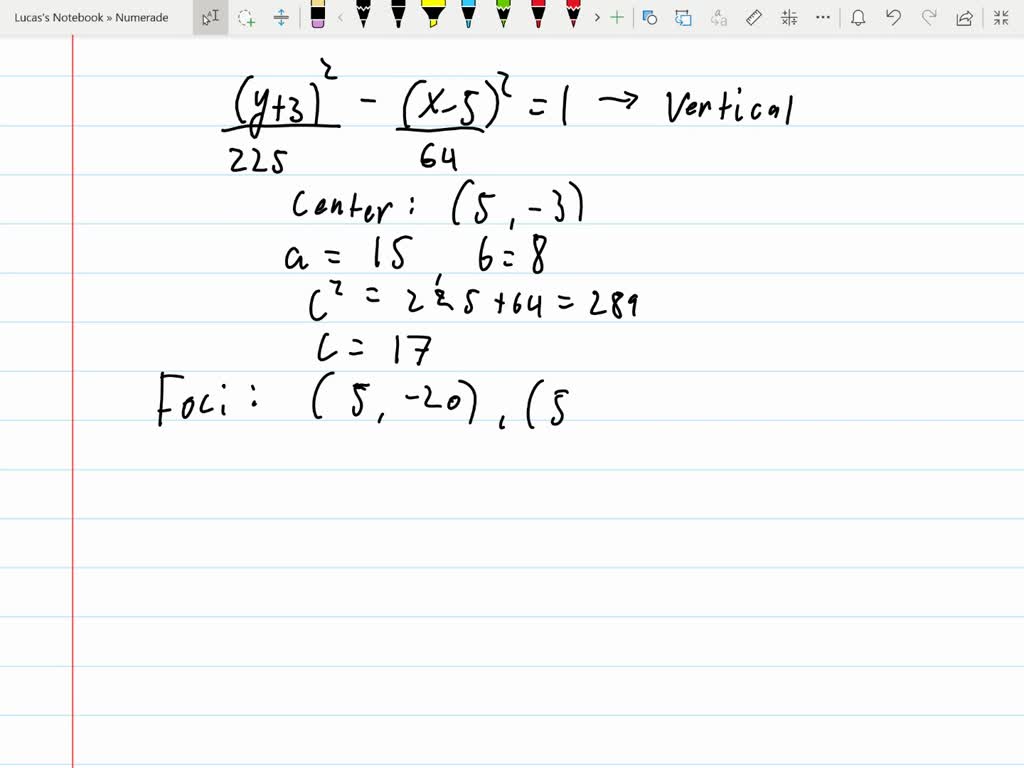 Lucas's Notebook » Numerade
(y+3)²/225 - (x-5)²/64 = 1 → Vertical
Center: (5, -3)
a = 15, b = 8
c² = 225 + 64 = 289
c = 17
Foci: (5, -20), (5